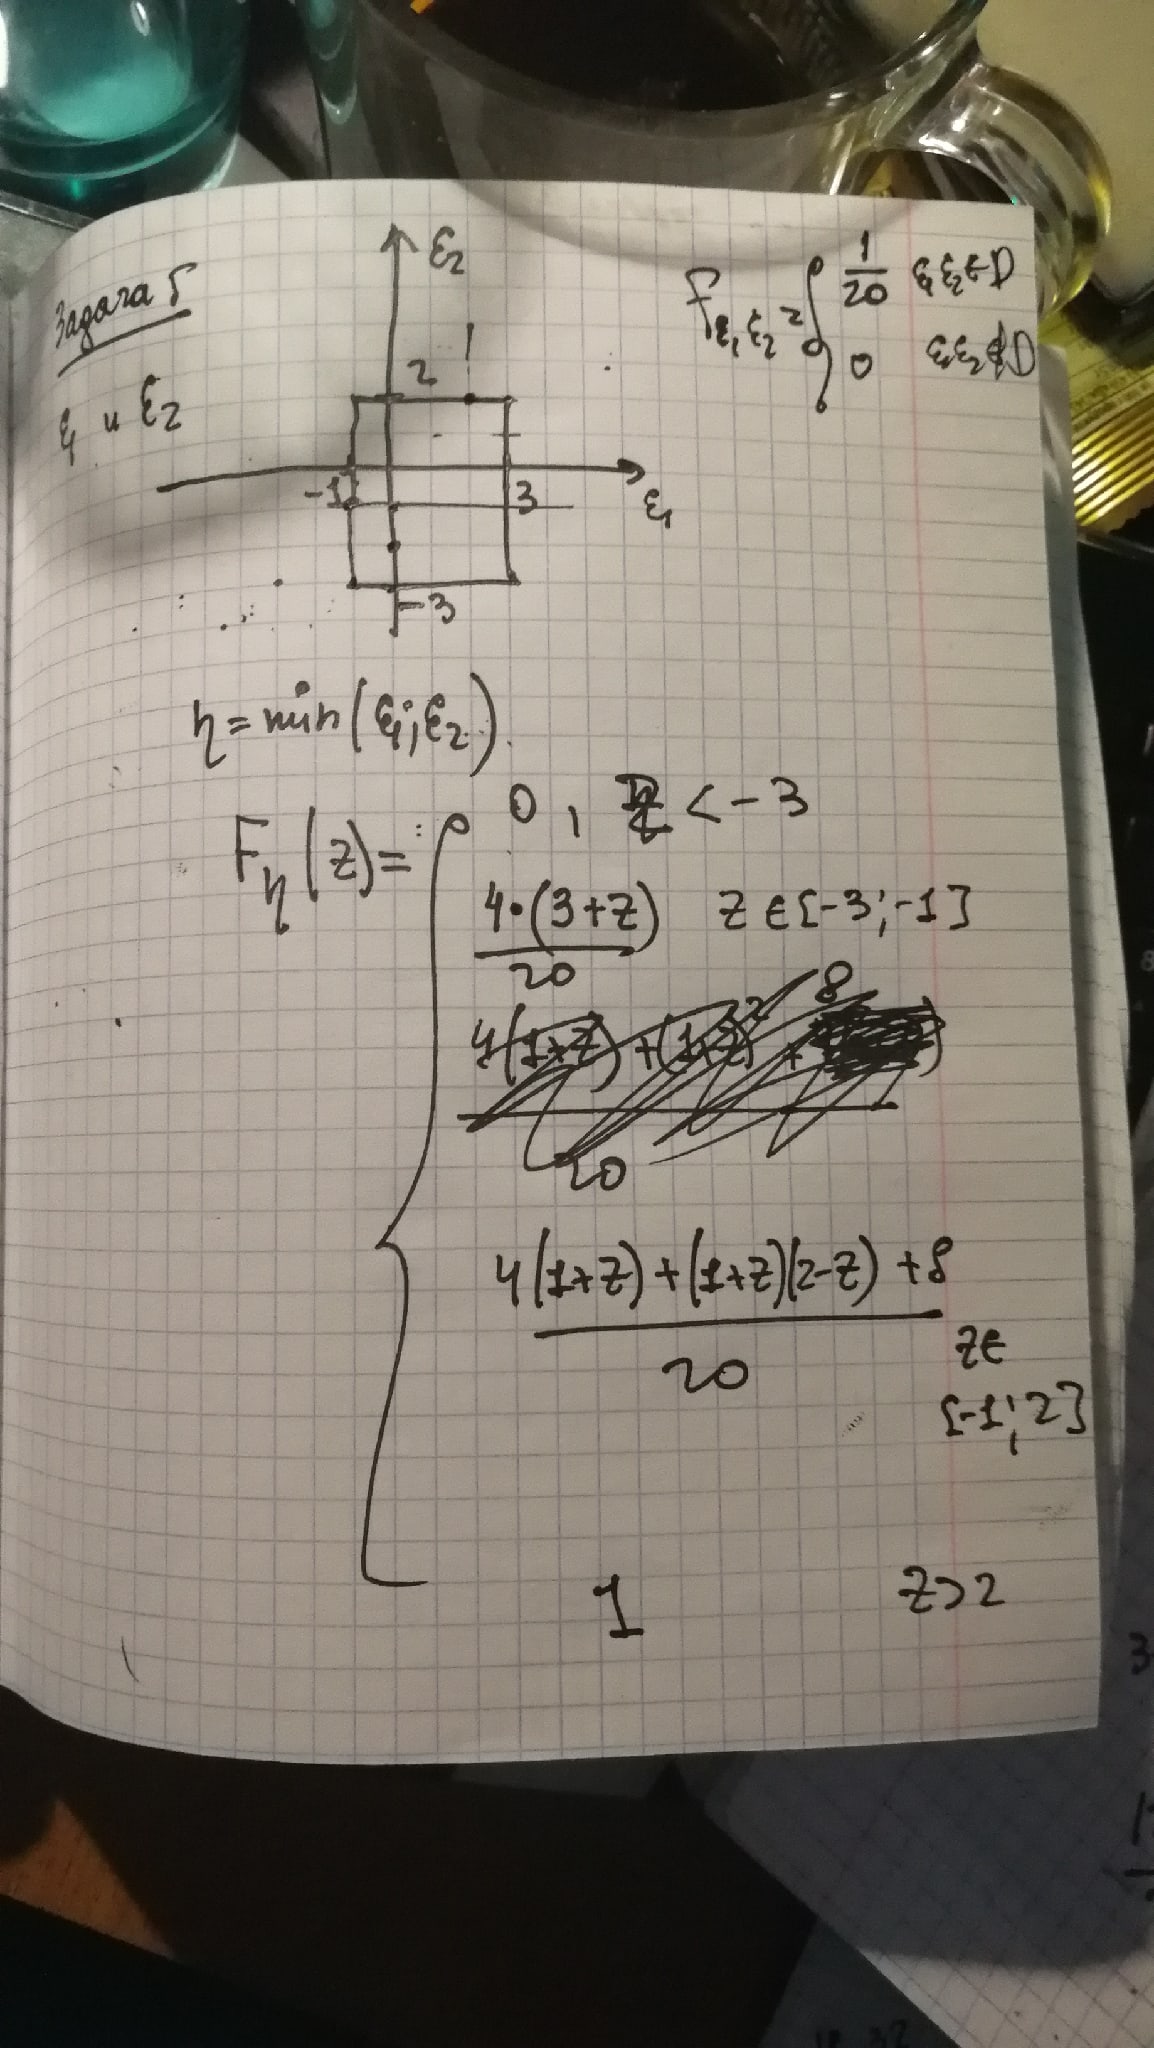 Задача 5
ξ₁ и ξ₂
ξ₂
2
-1
3
ξ₁
-3
f ξ₁ ξ₂ = { 1/20 ξ₁ ξ₂ ∈ D
0 ξ₁ ξ₂ ∉ D
η = min(ξ₁; ξ₂)
F_η(z) = { 0, z < -3
4·(3+z)/20 z ∈ [-3; -1]
(4(1+z)+(1+z)(2-z)+8)/20 z ∈ [-1; 2]
1 z > 2